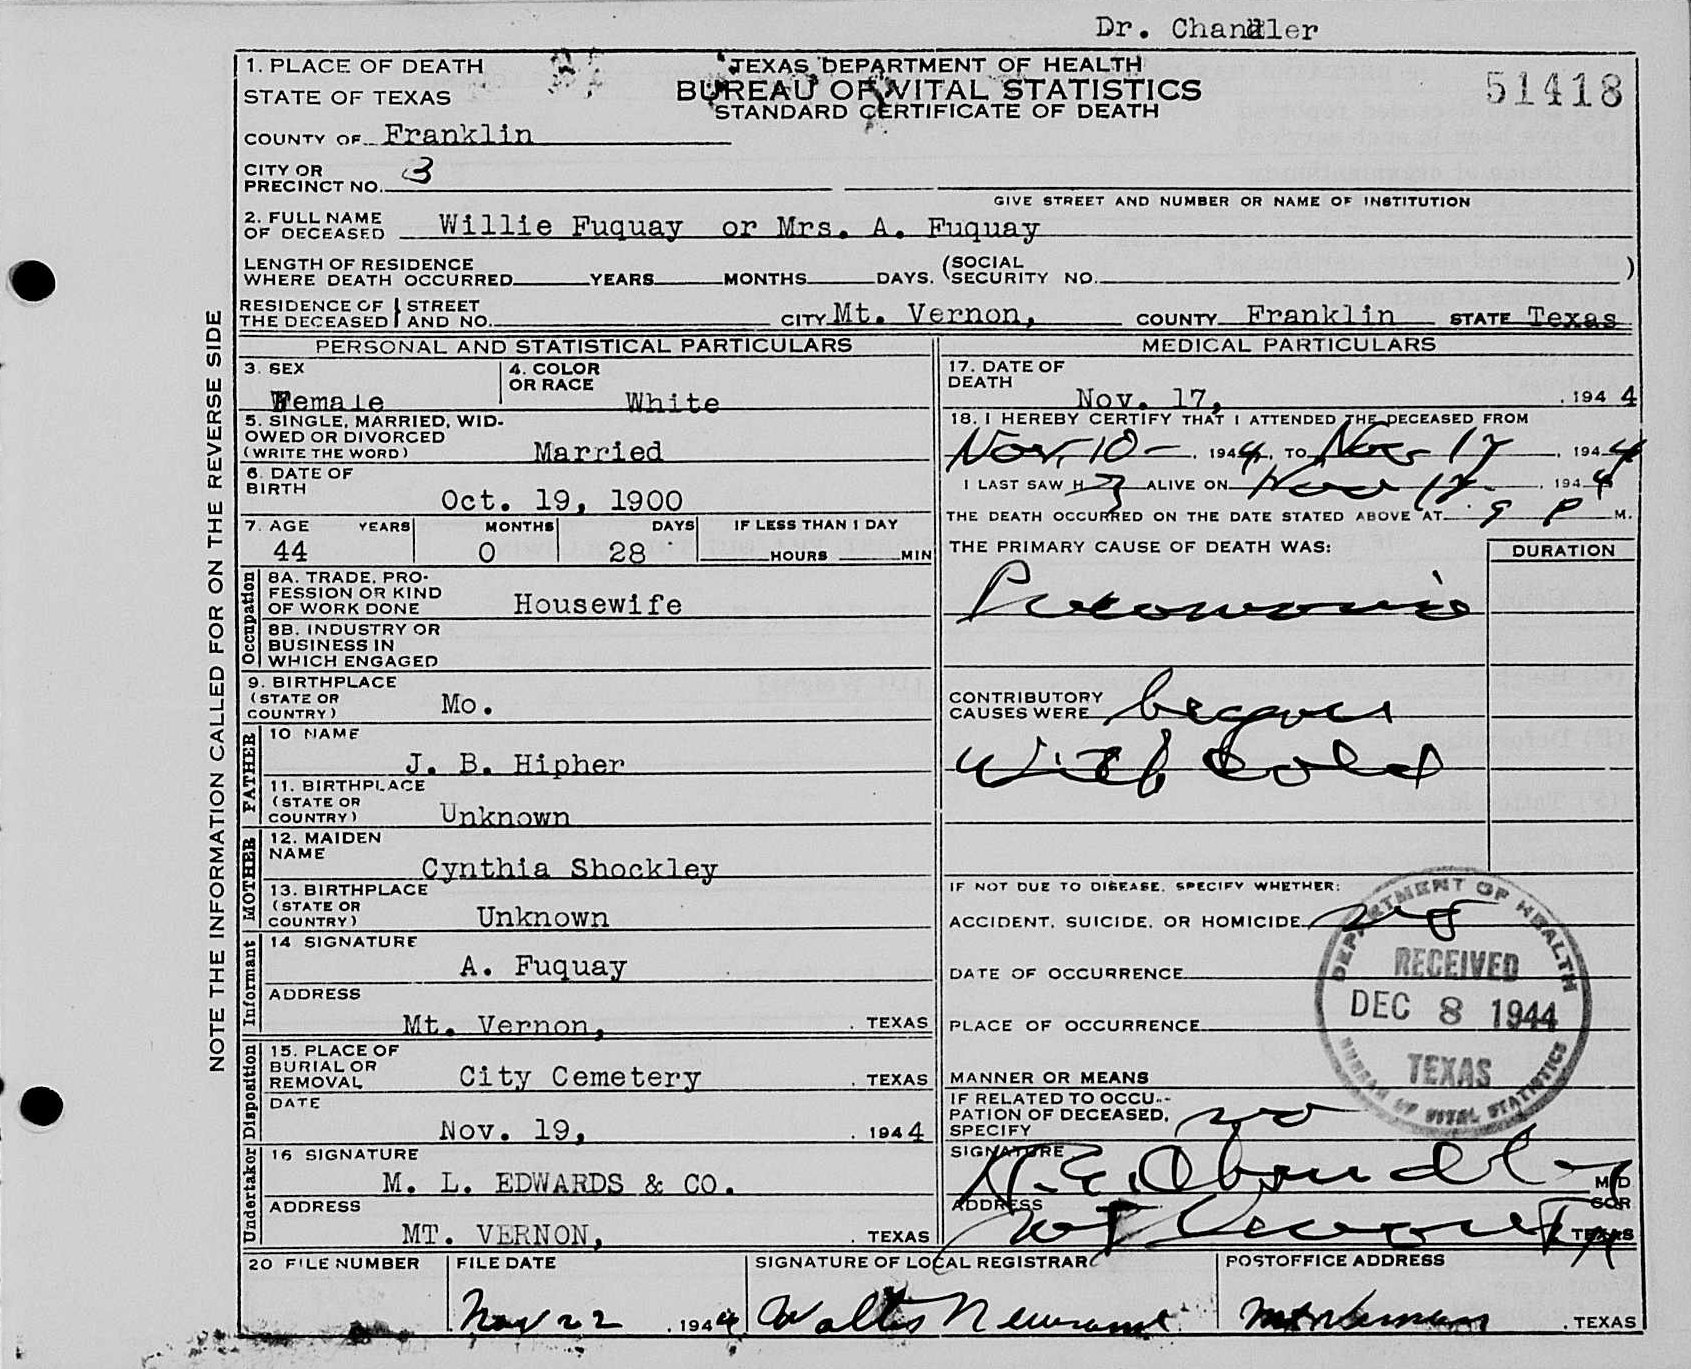 Dr. Chandler
1. PLACE OF DEATH
TEXAS DEPARTMENT OF HEALTH
STATE OF TEXAS
BUREAU OF VITAL STATISTICS
51418
STANDARD CERTIFICATE OF DEATH
COUNTY OF Franklin
CITY OR
PRECINCT NO. 3
GIVE STREET AND NUMBER OR NAME OF INSTITUTION
2. FULL NAME
OF DECEASED Willie Fuquay or Mrs. A. Fuquay
LENGTH OF RESIDENCE
WHERE DEATH OCCURRED YEARS MONTHS DAYS. (SOCIAL SECURITY NO. )
RESIDENCE OF THE DECEASED } STREET AND NO. CITY Mt. Vernon, COUNTY Franklin STATE Texas
PERSONAL AND STATISTICAL PARTICULARS
3. SEX
Female
4. COLOR
OR RACE
White
5. SINGLE, MARRIED, WID-
OWED OR DIVORCED
(WRITE THE WORD) Married
6. DATE OF
BIRTH
Oct. 19, 1900
7. AGE YEARS MONTHS DAYS IF LESS THAN 1 DAY
44 0 28 HOURS MIN
Occupation
8A. TRADE, PRO-
FESSION OR KIND
OF WORK DONE Housewife
8B. INDUSTRY OR
BUSINESS IN
WHICH ENGAGED
9. BIRTHPLACE
(STATE OR
COUNTRY) Mo.
FATHER
10 NAME
J. B. Hipher
11. BIRTHPLACE
(STATE OR
COUNTRY) Unknown
MOTHER
12. MAIDEN
NAME
Cynthia Shockley
13. BIRTHPLACE
(STATE OR
COUNTRY) Unknown
Informant
14 SIGNATURE
A. Fuquay
ADDRESS
Mt. Vernon, . TEXAS
Disposition
15. PLACE OF
BURIAL OR
REMOVAL City Cemetery . TEXAS
DATE
Nov. 19, . 1944
Undertaker
16 SIGNATURE
M. L. EDWARDS & CO.
ADDRESS
MT. VERNON, . TEXAS
MEDICAL PARTICULARS
17. DATE OF
DEATH
Nov. 17, . 1944
18. I HEREBY CERTIFY THAT I ATTENDED THE DECEASED FROM
Nov. 10 - . 1944, TO Nov 17 . 1944
I LAST SAW H ALIVE ON Nov 17 . 1944
THE DEATH OCCURRED ON THE DATE STATED ABOVE AT 9 P M.
THE PRIMARY CAUSE OF DEATH WAS:
DURATION
Pneumonia
CONTRIBUTORY
CAUSES WERE began
with Cold
IF NOT DUE TO DISEASE, SPECIFY WHETHER:
ACCIDENT, SUICIDE, OR HOMICIDE no
DATE OF OCCURRENCE
PLACE OF OCCURRENCE
MANNER OR MEANS
IF RELATED TO OCCU-
PATION OF DECEASED,
SPECIFY no
SIGNATURE
Chandler
MD
COR
ADDRESS
Mt Vernon Tex
TEXAS
DEPARTMENT OF HEALTH
RECEIVED
DEC 8 1944
TEXAS
BUREAU OF VITAL STATISTICS
20 FILE NUMBER FILE DATE SIGNATURE OF LOCAL REGISTRAR POSTOFFICE ADDRESS
Nov 22 . 1944 Walter Newsome Mt Vernon . TEXAS
NOTE THE INFORMATION CALLED FOR ON THE REVERSE SIDE